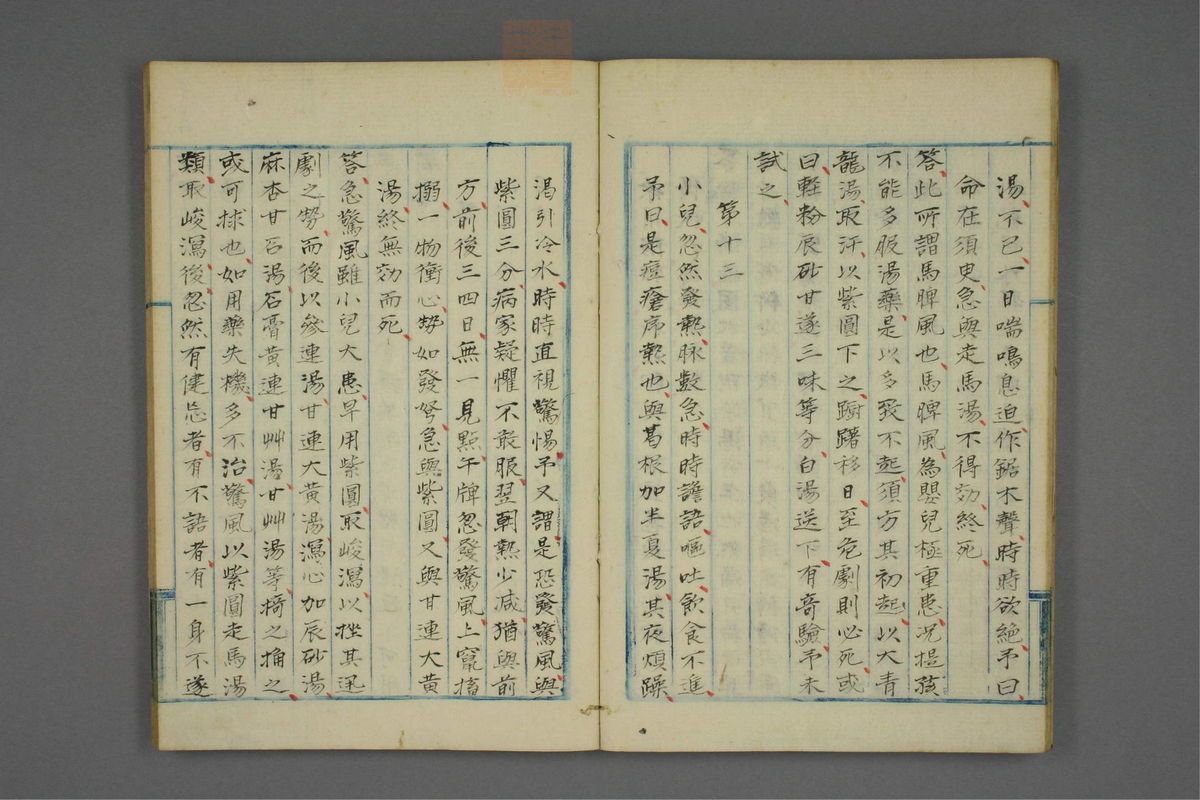 湯不已一日喘鳴息迫作鋸木聲時時欲絶予曰
命在須臾急與走馬湯不得効終死
答此所謂馬脾風也馬脾風為嬰兒極重患況提孩
不能多服湯藥是以多致不起須方其初起以大青
龍湯取汗以紫圓下之蹰躇移日至危劇則必死或
曰軽粉辰砂甘遂三味等分白湯送下有奇驗予未
試之
第十三
小兒忽然發熱脉数急時時譫語嘔吐飲食不進
予曰是痘瘡序熱也與葛根加半夏湯其夜煩躁
渇引冷水時時直視驚惕予又謂是恐發驚風與
紫圓三分病家疑懼不敢服翌朝熱少减猶與前
方前後三四日無一見點午牌忽發驚風上竄搐
搦一物衝心勢如發弩急與紫圓又與甘連大黄
湯終無効而死
答急驚風雖小兒大患早用紫圓取峻瀉以挫其迅
劇之勢而後以縁連湯甘連大黄湯瀉心加辰砂湯
麻杏甘石湯石膏黄連甘艸湯甘艸湯等掎之捔之
或可救也如用藥失機多不治驚風以紫圓走馬湯
類取峻瀉後忽然有健忘者有不語者有一身不遂